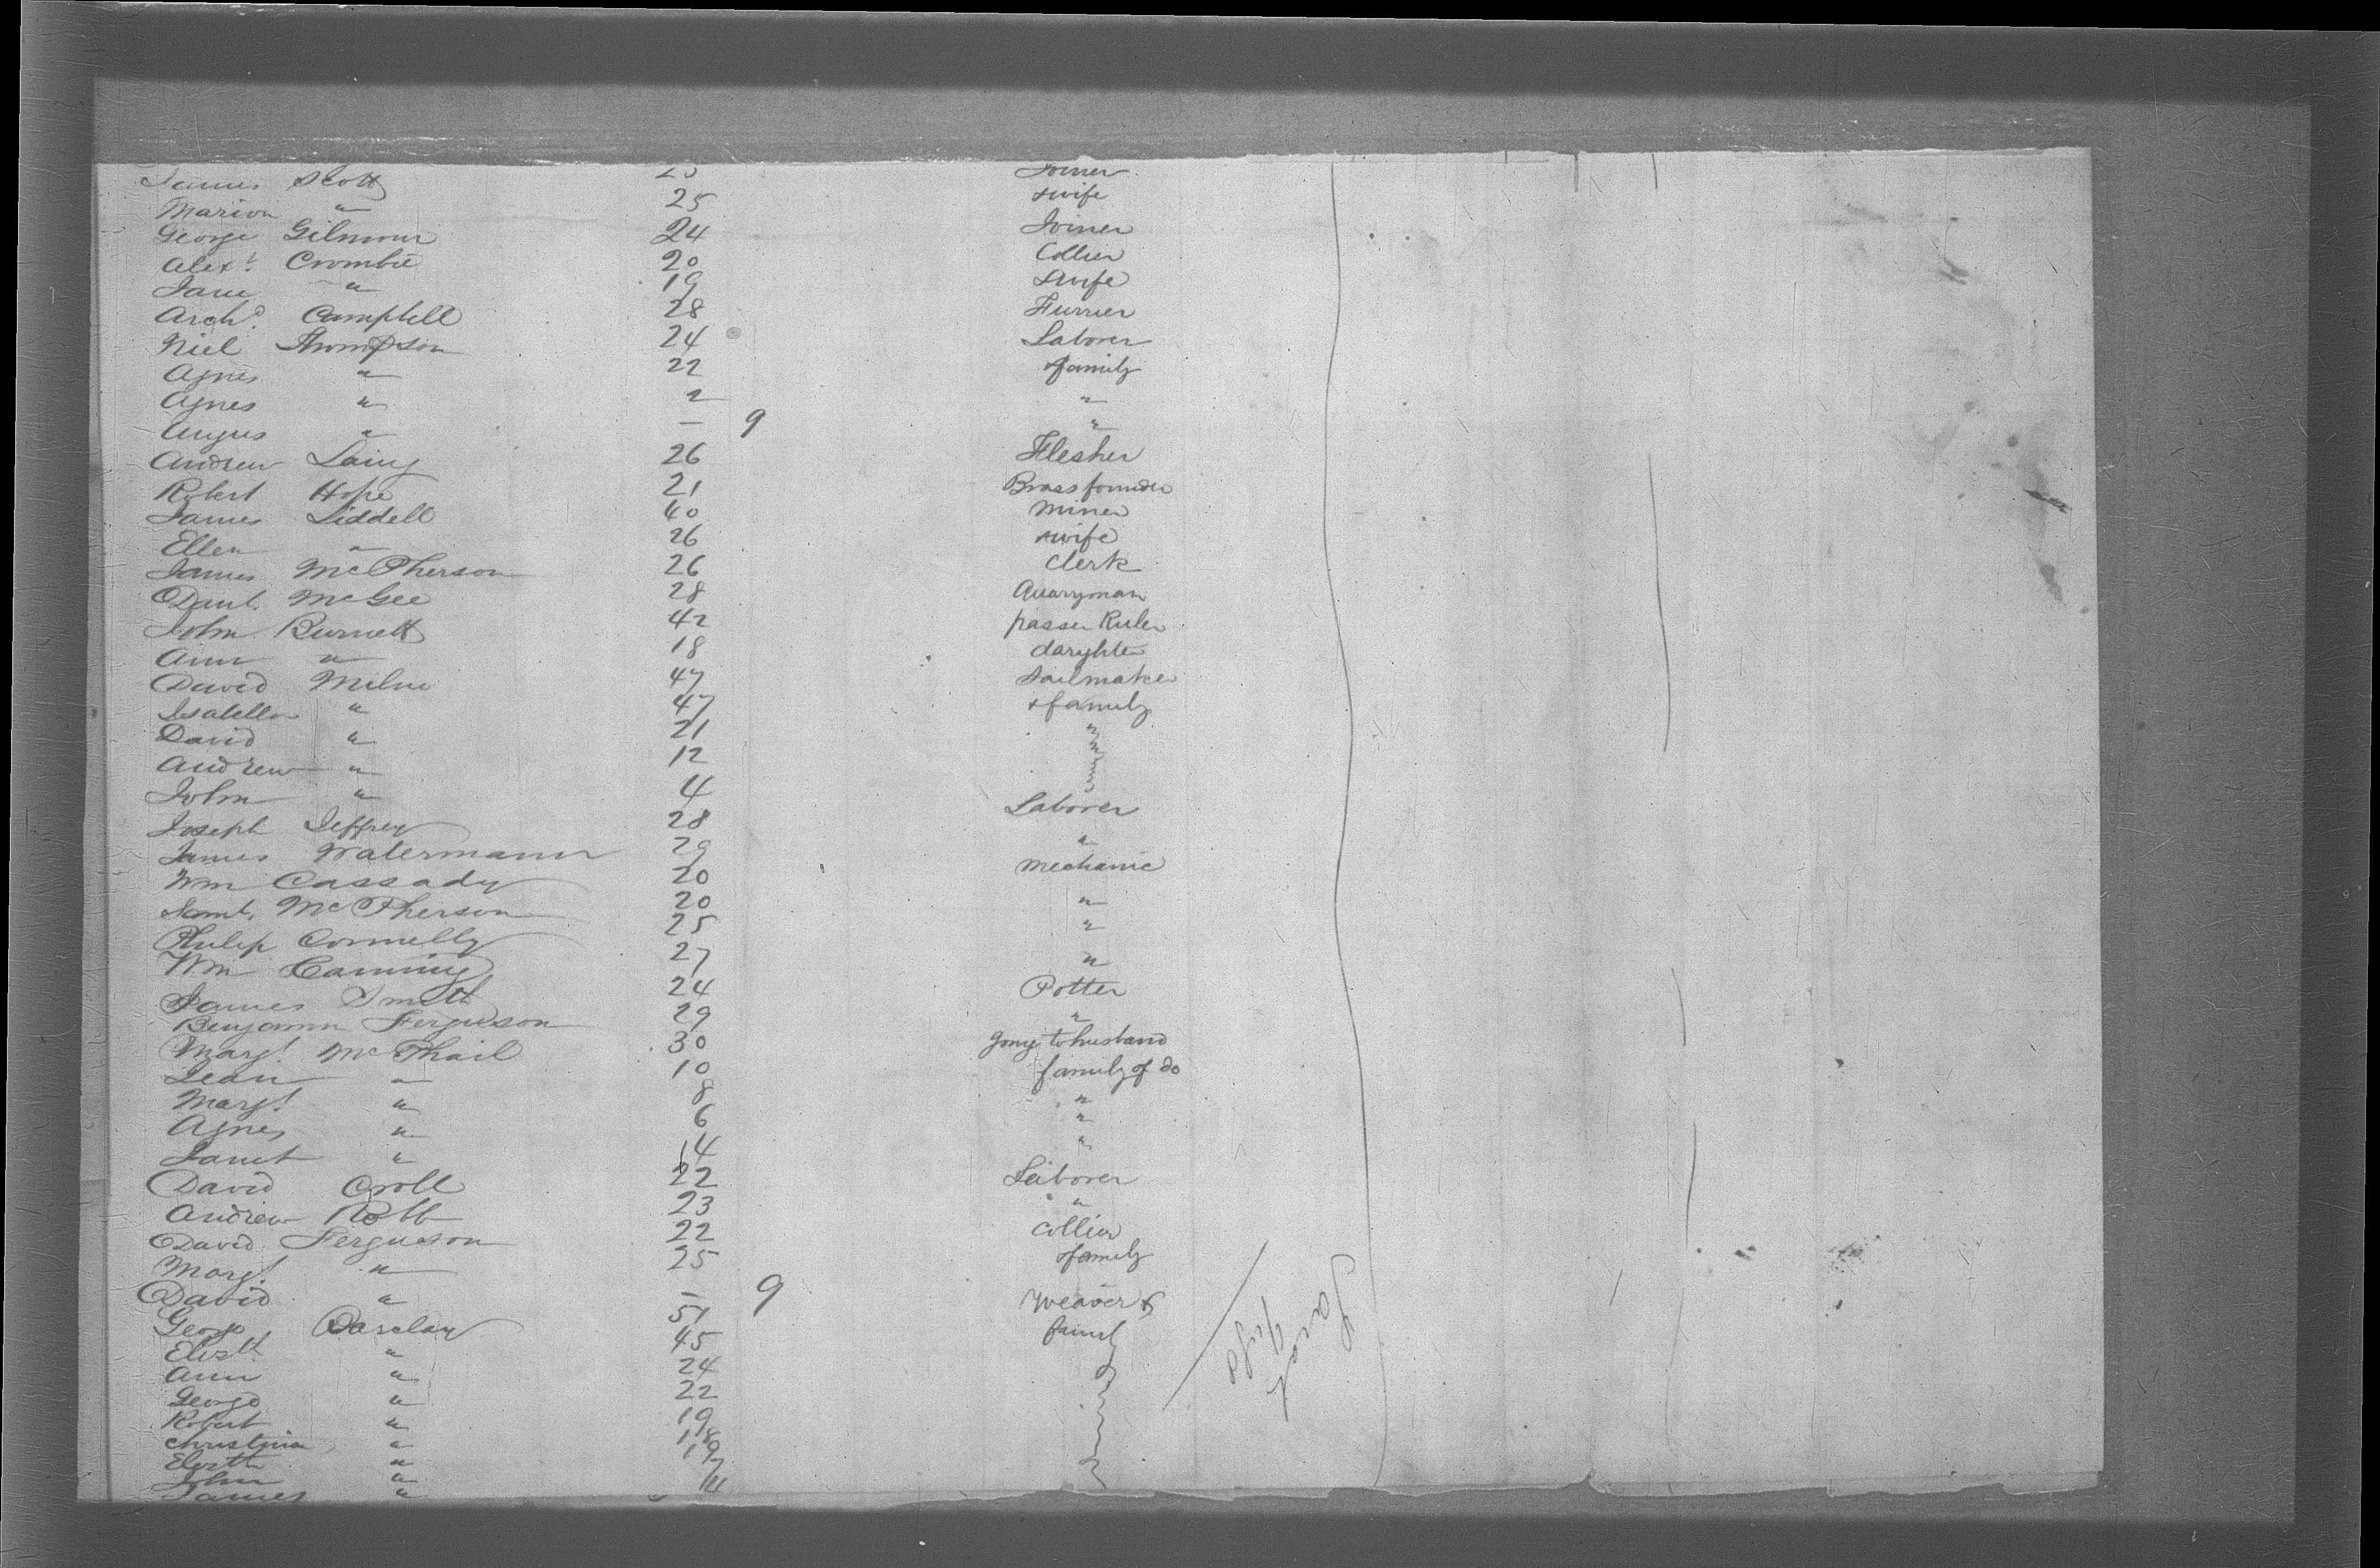 James Scott 25 Joiner
Marion " 25 & wife
George Gilmour 24 Joiner
Alexr. Crombie 20 Collier
Jane " 19 & wife
Archd. Campbell 28 Furrier
Niel Thompson 24 Laborer
Agnes " 22 & family
Agnes " 2 "
Angus " — 9 "
Andrew Laing 26 Flesher
Robert Hope 21 Brassfounder
James Liddell 40 Miner
Ellen " 26 & wife
James McPherson 26 Clerk
Danl. McGee 28 Quaryman
John Burnett 42 Ruler
Ann " 18 daughter
David Milne 47 Sailmaker
Isabella " 47 & family
David " 21 "
Andrew " 12 "
John " 4 "
Joseph Jeffrey 28 Laborer
James Watermann 29 "
Wm Cassady 20 Mechanic
Saml. McPherson 20 "
Philip Connelly 25 "
Wm Canning 27 "
James Smith 24 Potter
Benjamin Ferguson 29 "
Margt. McPhail 30 going to husband
Jean " 10 family of do
Margt. " 8 "
Agnes " 6 "
Janet " 14 "
David Croll 22 Laborer
Andrew Robb 23 "
David Ferguson 22 Collier
Margt. " 25 & family
David " — 9
George Barclay 51 Weaver &
Elizth. " 45 family
Ann " 24
George " 22
Robert " 19
Christina "
Elizth "
John "
James "